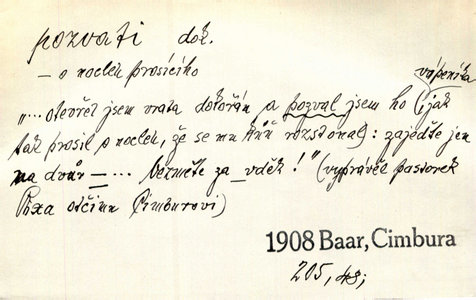 pozvati dok.
— o nocleh prosícího
vápeníka
"... otevřel jsem vrata dokořán a pozval jsem ho (jak
tak prosil o nocleh, že se mu kůň rozstonal): zajeďte jen
na dvůr — ... vezměte za_vděk!" (vyprávěl pastorek
Píxa otčímu Cimburovi)
1908 Baar, Cimbura
205,